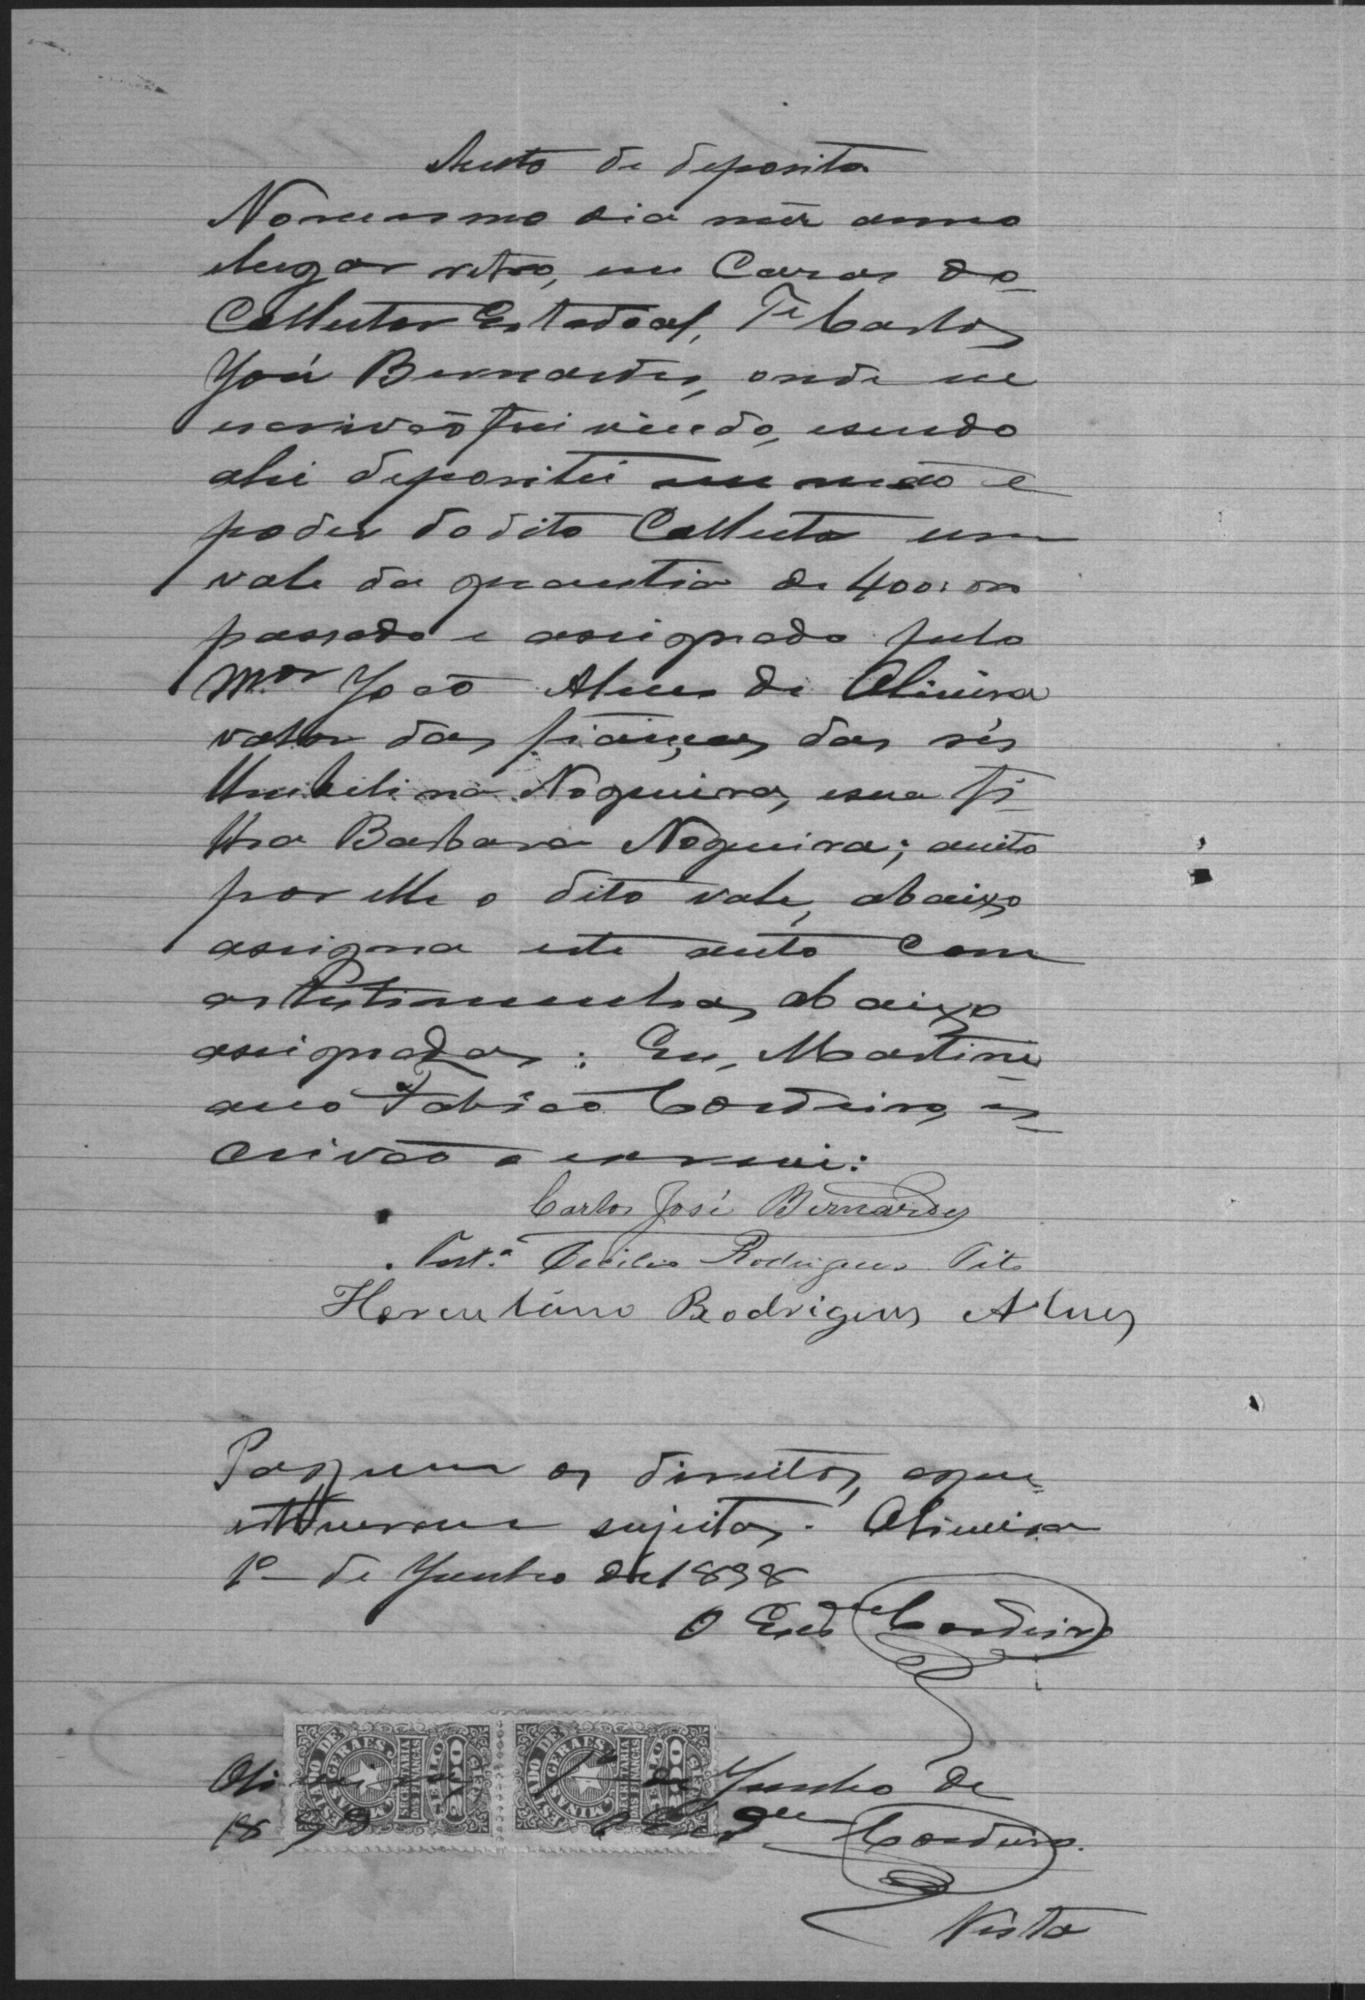 Auto de deposito
No mesmo dia mez anno
e lugar retro, em Casas do
Collector Estadoal, Te Carlos
José Bernardes, onde eu
escrivão fui vindo, e sendo
ahi depositei em mão e
poder do dito Collector um
vale da quantia de 400:000
passado e assignado pelo
Mor João Alves de Oliveira
valor das fianças das rés
Umbelina Nogueira, e sua fi-
lha Barbara Nogueira; aceito
por elle o dito vale, abaixo
assigna este auto com
as testimunhas abaixo
assignadas: Eu, Martini-
ano Fabião Cordeiro, es-
crivão o escrevi:
Carlos José Bernardes
Test.ª Cecilio Rodrigues Tito
Herculano Rodrigues Alves
Paguem os direitos, a que
estiverem sujeitos. Oliveira
1º de Junho de 1898
O Escrm Cordeiro
Oliveira 1º de Junho de
1898 O Escrm Cordeiro.
ESTADO DE MINAS GERAES SECRETARIA DAS FINANÇAS SELLO
ESTADO DE MINAS GERAES SECRETARIA DAS FINANÇAS SELLO
Visto